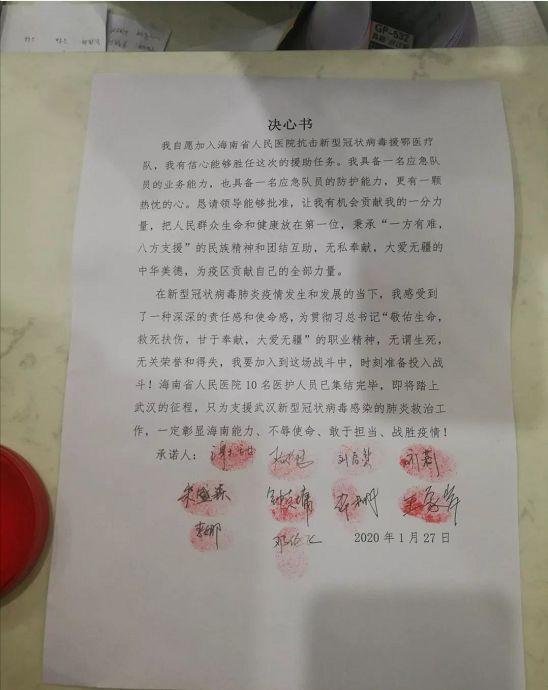 GP-532
决心书
我自愿加入海南省人民医院抗击新型冠状病毒援鄂医疗
队，我有信心能够胜任这次的援助任务。我具备一名应急队
员的业务能力，也具备一名应急队员的防护能力，更有一颗
热忱的心。恳请领导能够批准，让我有机会贡献我的一分力
量，把人民群众生命和健康放在第一位，秉承“一方有难，
八方支援”的民族精神和团结互助，无私奉献，大爱无疆的
中华美德，为疫区贡献自己的全部力量。
在新型冠状病毒肺炎疫情发生和发展的当下，我感受到
了一种深深的责任感和使命感，为贯彻习总书记“敬佑生命，
救死扶伤，甘于奉献，大爱无疆”的职业精神，无谓生死，
无关荣誉和得失，我要加入到这场战斗中，时刻准备投入战
斗！海南省人民医院 10 名医护人员已集结完毕，即将踏上
武汉的征程，只为支援武汉新型冠状病毒感染的肺炎救治工
作，一定彰显海南能力、不辱使命、敢于担当、战胜疫情！
承诺人：
李娜
2020 年 1 月 27 日